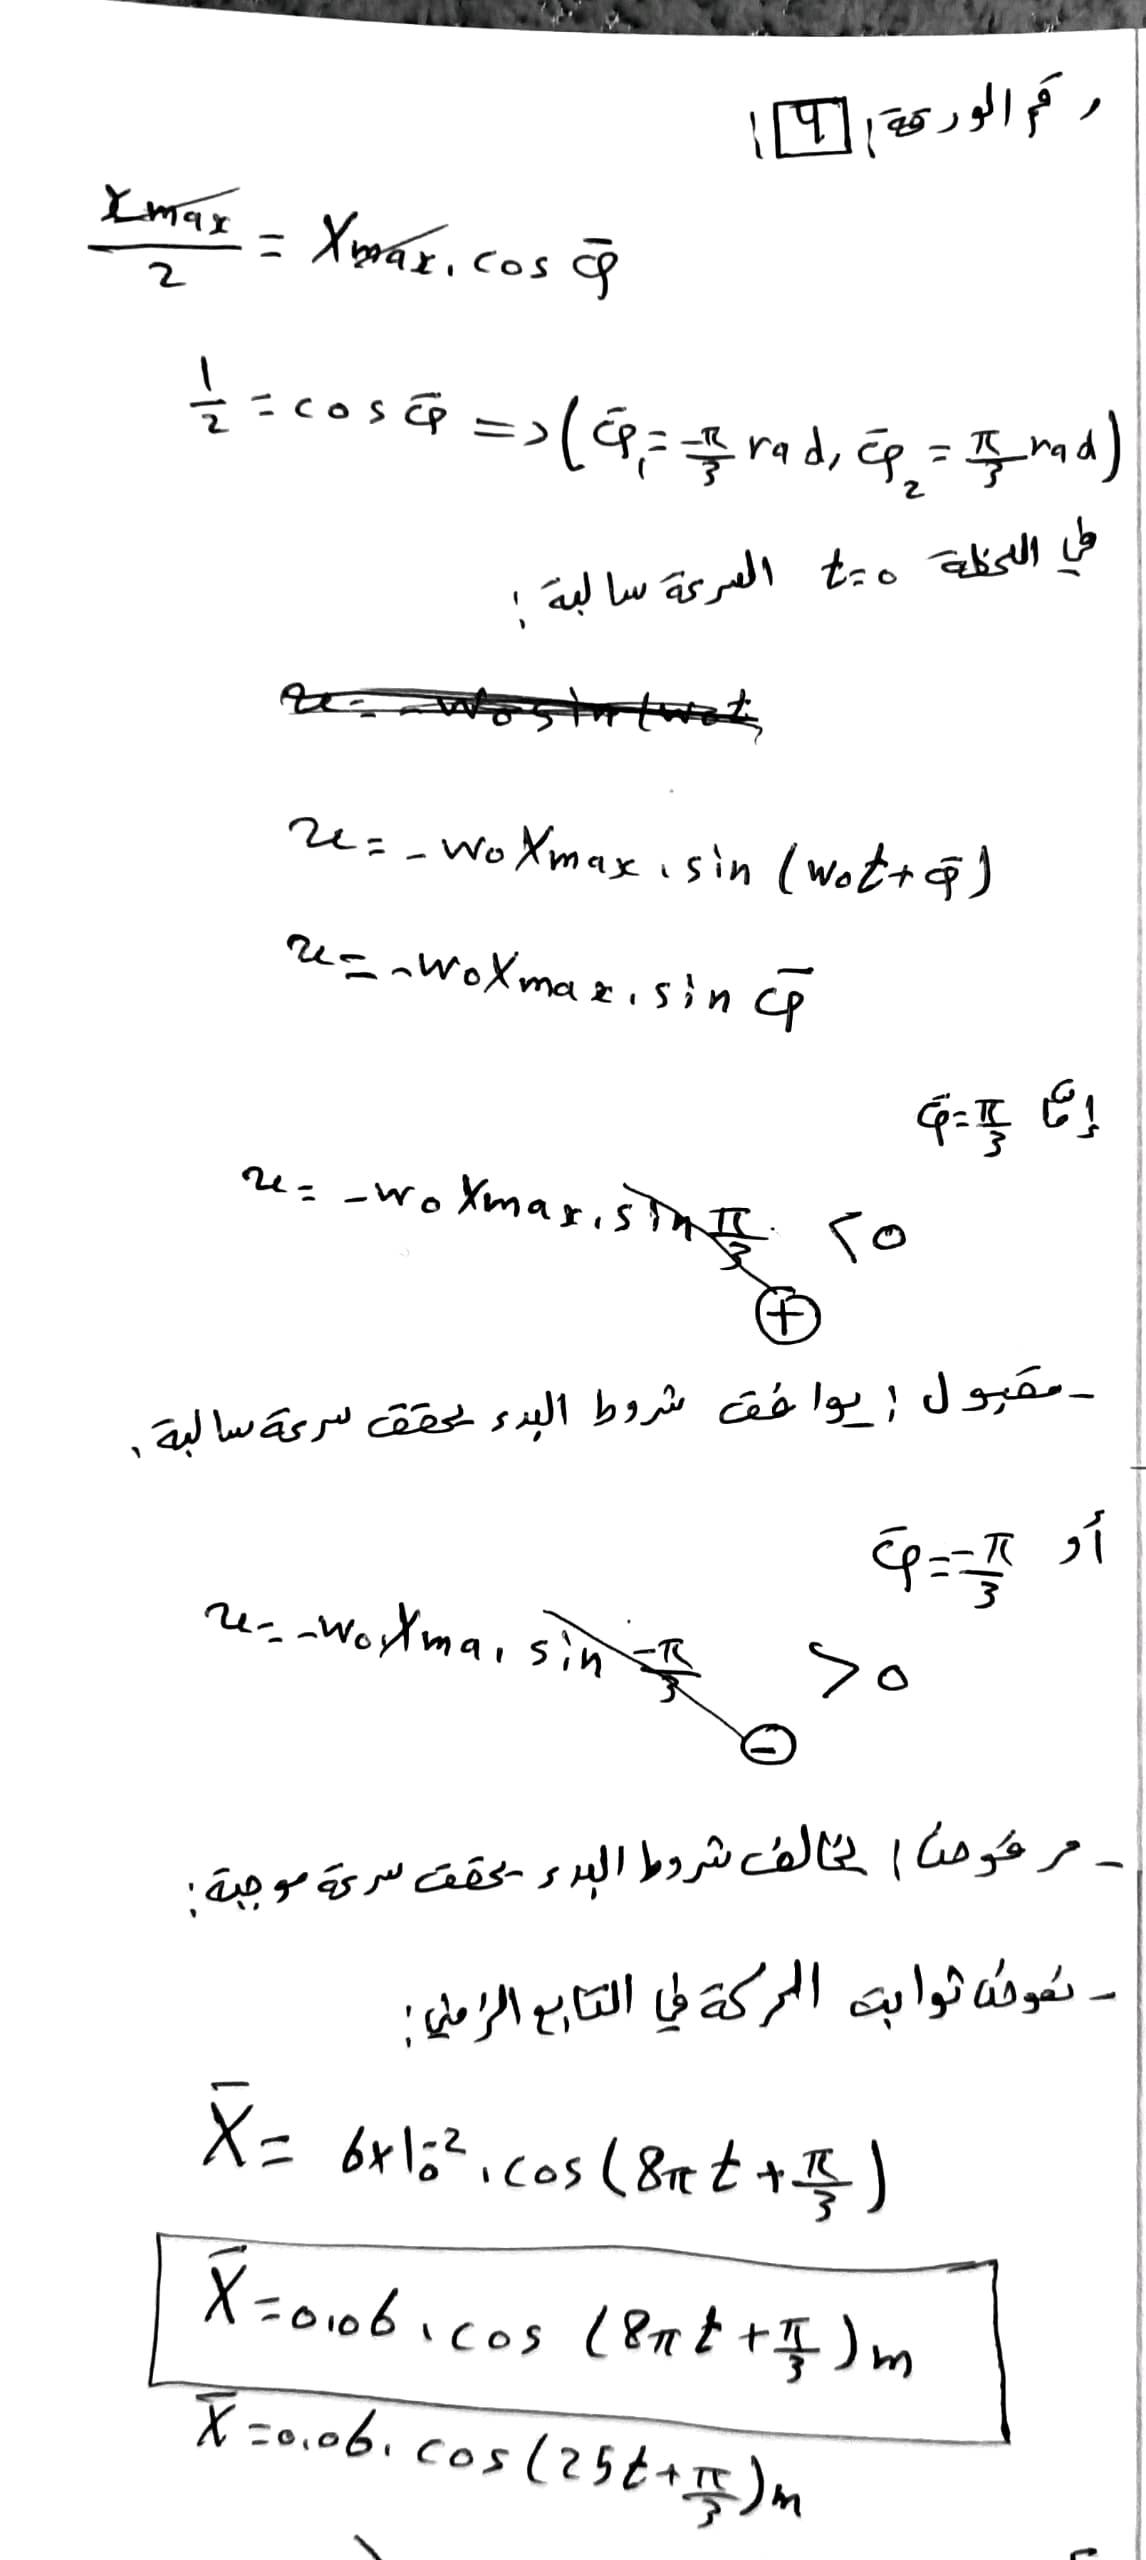 رقم الورقة: 9
Xmax/2 = Xmax . cos φ̄
1/2 = cos φ̄ => (φ̄₁ = -π/3 rad, φ̄₂ = π/3 rad)
في اللحظة t=0 السرعة سالبة:
v = -w₀ Xmax . sin (w₀t + φ̄)
v = -w₀ Xmax . sin φ̄
إمّا φ̄ = π/3
v = -w₀ Xmax . sin π/3 < 0
+
- مقبول: يوافق شروط البدء يحقق سرعة سالبة.
أو φ̄ = -π/3
v = -w₀ Xma . sin -π/3 > 0
-
- مرفوض: يخالف شروط البدء يحقق سرعة موجبة:
- نعوض ثوابت الحركة في التابع الزمني:
X̄ = 6x10⁻² . cos (8π t + π/3)
X̄ = 0.06 . cos (8π t + π/3) m
X̄ = 0.06 . cos (25t + π/3) m